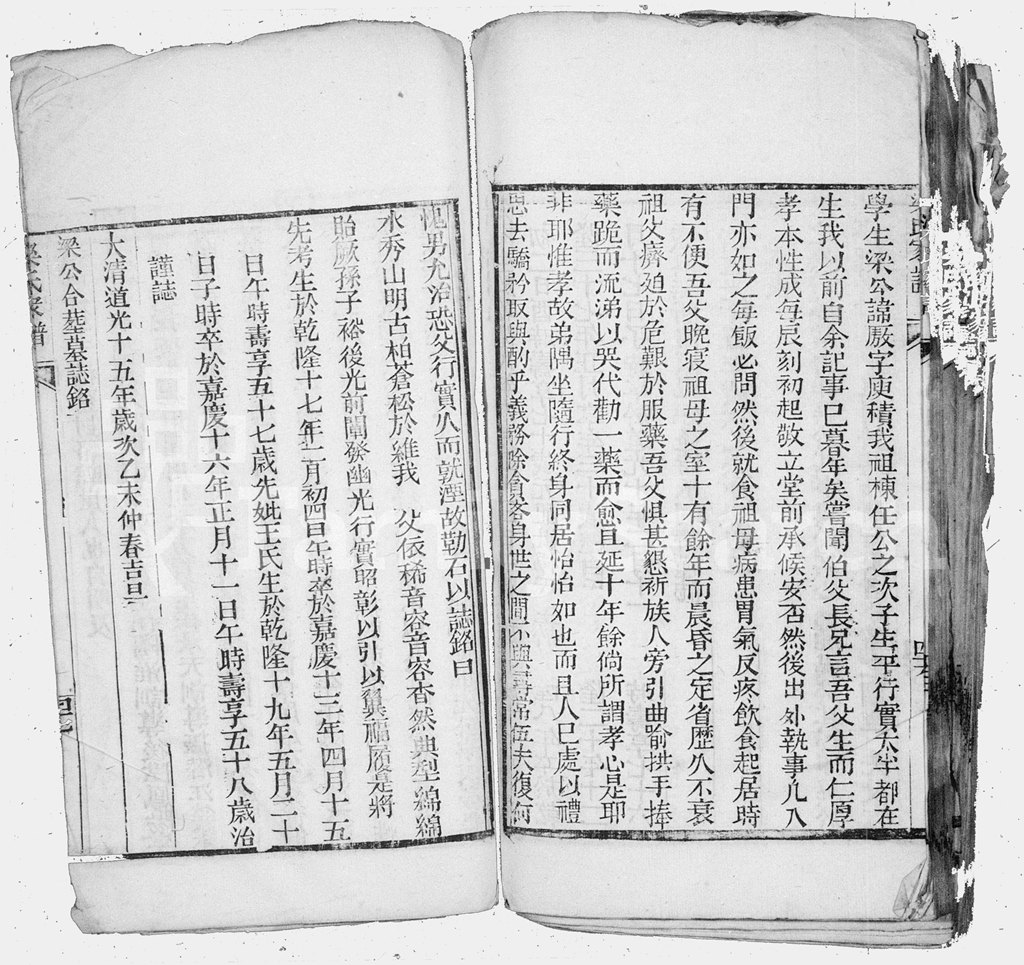 梁氏家譜
學生梁公諱殿字庾積我祖棟任公之次子生平行實太半都在
生我以前自余記事已暮年矣嘗聞伯父長兄言吾父生而仁厚
孝本性成每辰刻初起敬立堂前承候安否然後出外執事凡入
門亦如之每飯必問然後就食祖母病患胃氣反疼飲食起居時
有不便吾父晚寢祖母之室十有餘年而晨昏之定省歷久不衰
祖父癠廹於危艱於服藥吾父惧甚懇祈族人旁引曲喻拱手捧
藥跪而流涕以哭代勸一藥而愈且延十年餘倘所謂孝心是耶
非耶惟孝故弟隅坐隨行終身同居怡怡如也而且人巳處以禮
思去驕矜取與酌乎義務除貪吝身世之間不與尋常伍夫復何
愧男允治恐父行實久而就湮故勒石以誌銘曰
水秀山明古柏蒼松於維我 父依稀音容音容杳然典型綿綿
貽厥孫子裕後光前闡發幽光行實昭彰以引以翼福履是將
先考生於乾隆十七年二月初四日午時卒於嘉慶十三年四月十五
日午時壽享五十七歲先妣王氏生於乾隆十九年五月二十
日子時卒於嘉慶十六年正月十一日午時壽享五十八歲治
謹誌
大清道光十五年歲次乙未仲春吉旦
梁公合塟墓誌銘
梁氏家譜
四七